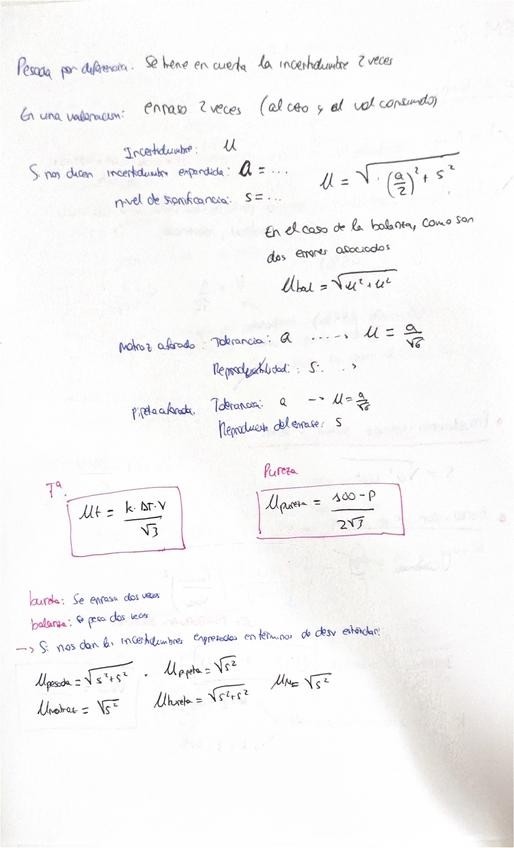 Pesada por diferencia. Se tiene en cuenta la incertidumbre 2 veces
En una valoracion: enraso 2 veces (al cero y al vol consumido)
Incertidumbre: u
Si nos dicen incertidumbre expandida: a = ...
nivel de significancia: s = ...
u = √(a/2)² + s²
En el caso de la balanza, como son
dos errores asociados
ubal = √u² + u²
Matraz aforado: Tolerancia: a ----→ u = a/√6
Reproducibilidad: s
Pipeta aforada. Tolerancia: a → u = a/√6
del enrase: s
Tª.
ut = k·ΔT·V/√3
Pureza
upureza = 100-P/2√3
bureta: Se enrasa dos veces
balanza: se pesa dos veces
→ Si nos dan las incertidumbres expresadas en términos de desv estándar:
upesada = √s²+s² . upipeta = √s²
umatraz = √s² ubureta = √s²+s² = √s²